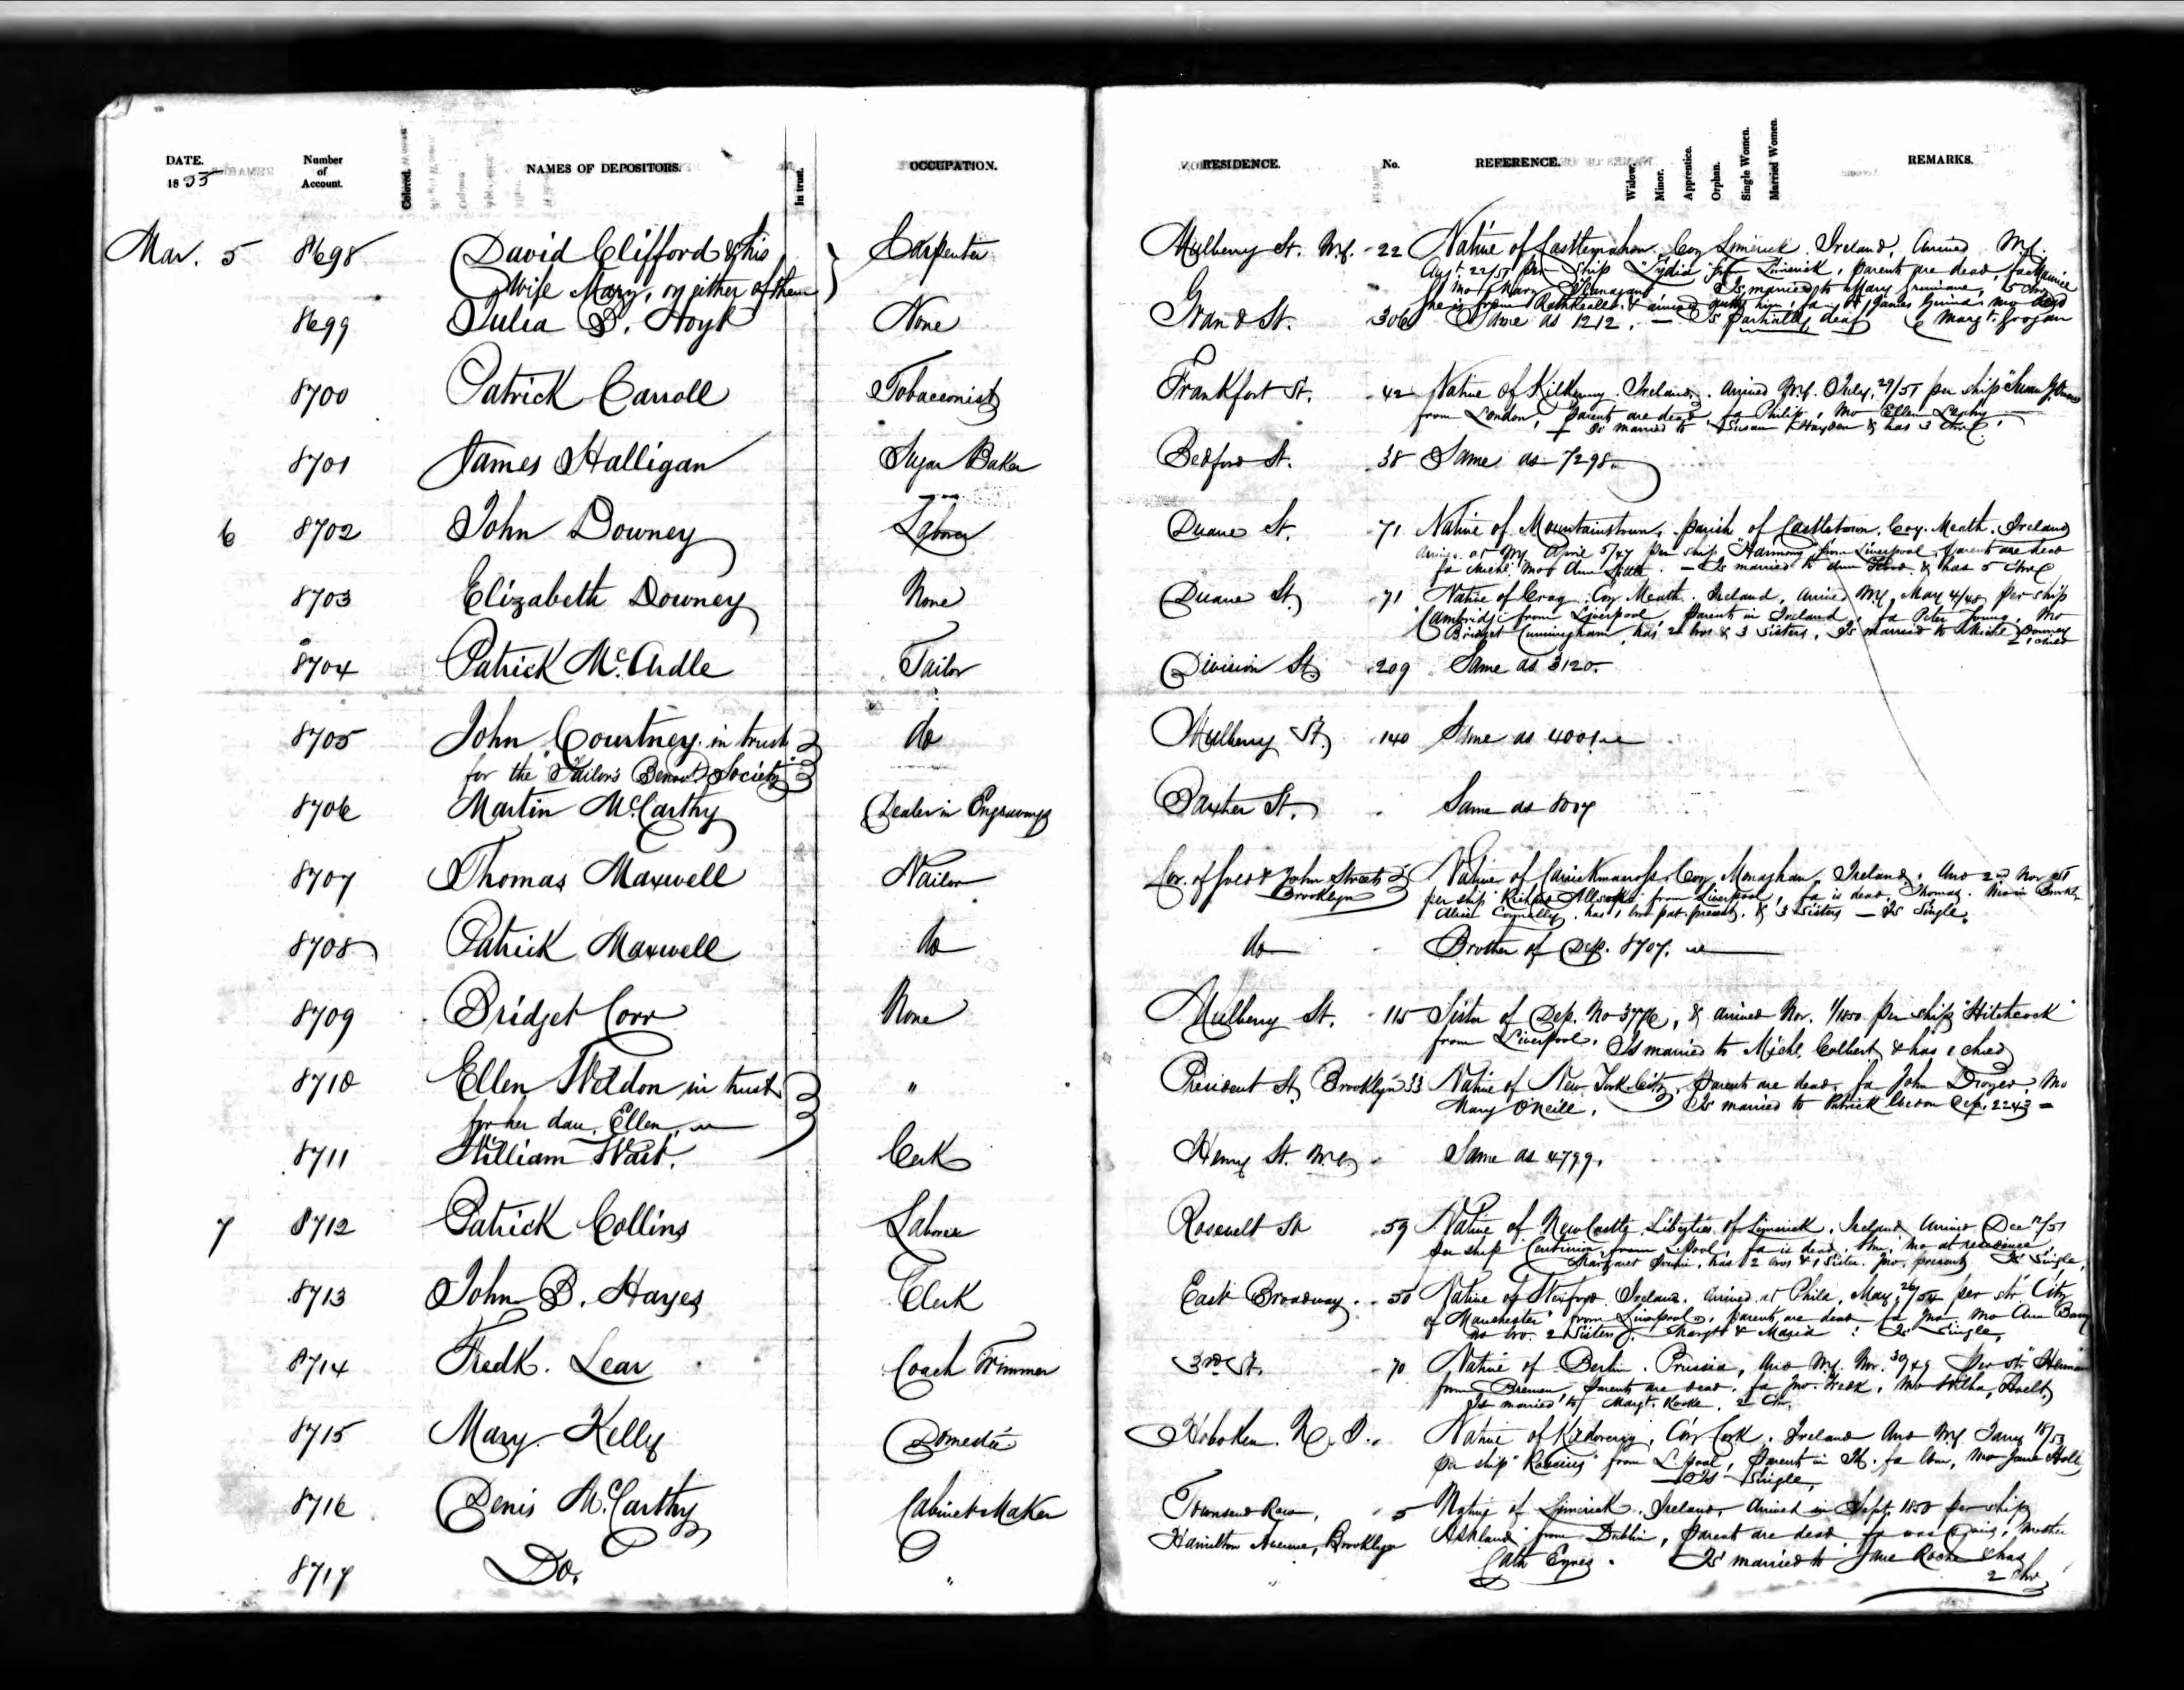 DATE.
1855
Number
of
Account.
Colored.
NAMES OF DEPOSITORS.
In trust.
OCCUPATION.
RESIDENCE.
No.
REFERENCE.
Widow.
Minor.
Apprentice.
Orphan.
Single Women.
Married Women.
REMARKS.
Mar. 5 8698 David Clifford & his Carpenter Mulberry St. N.Y. 22 Native of Castlemahon Coy Limerick Ireland, Arrived N.Y.
Wife Mary, or either of them Augt. 22/51 per Ship "Lydia" from Limerick, parents are dead, fa Maurice
mo Mary Flanagan Is married to Mary 5 Chn
she is from Rathkeale & arrived with him, fa James mo dead
Margt. Grogan
8699 Julia D. Hoyt None Grand St. 306 Same as 1212. — Is partially deaf
8700 Patrick Carroll Tobacconist Frankfort St. 42 Native of Kilkenny Ireland. Arrived N.Y. July 29/51 per ship "Susan
from London, Parents are dead fa Philip, Mo Ellen
Is married to Susan Hayden & has 3 Chn.
8701 James Halligan Sugar Baker Bedford St. 38 Same as 7298.
6 8702 John Downey Laborer Duane St. 71 Native of Mountainstown, parish of Castletown, Coy. Meath. Ireland
at N.Y. April 5/47 per ship "Harmony" from Liverpool, parents are dead
fa Michl. mo Ann — Is married to Ann & has 5 Chn
8703 Elizabeth Downey None Duane St. 71 Native of Coy. Meath. Ireland, Arrived N.Y. May 4/48 per ship
"Cambridge" from Liverpool, Parents in Ireland, fa Peter Mo
Bridget Cunningham, has 2 bros & 3 sisters, Is married to Michl Downey
1 child
8704 Patrick McArdle Tailor Division St. 209 Same as 3120.
8705 John Courtney in trust do Mulberry St. 140 Same as 4001.
for the Tailor's Benevt. Society
8706 Martin McCarthy Dealer in Engravings Baxter St. Same as
8707 Thomas Maxwell Nailor Cor. of Gold & John Streets Native of Carrickmacross Coy. Monaghan. Ireland. Arrd 2nd Nov
Brooklyn per ship from Liverpool, fa is dead, Thomas. Mo in Brookln
Alice Connolly, has 1 bro pat. present. & 3 Sisters — Is Single.
8708 Patrick Maxwell do do Brother of Dep. 8707.
8709 Bridget Corr None Mulberry St. 115 Sister of Dep. No 3776, & arrived Nov. 1/1850 per ship "Hitchcock"
from Liverpool. Is married to Michl. Colbert & has 1 child
8710 Ellen Weldon in trust " President St. Brooklyn 33 Native of New York City, Parents are dead, fa John Mo
for her dau. Ellen Mary O'Neill. Is married to Patrick Dep. 2243
8711 William Wait. Clerk Henry St. N.Y. Same as 4799.
7 8712 Patrick Collins Laborer Rosevelt St 59 Native of NewCastle Liberties of Limerick, Ireland Arrived Dec 12/51
per ship Centurion from L.pool, fa is dead. mo at residence,
Margaret has 2 bros & 1 sister. present Is Single,
8713 John B. Hayes Clerk East Broadway. 50 Native of Wexford Ireland. Arrived at Phila. May 26/54 per str City
of Manchester from Liverpool, parents are dead fa Jno. mo Ann Barry
no bro. 2 sisters Margt & Maria : Is Single,
8714 Fredk. Lear Coach Trimmer 3rd St. 70 Native of Berlin. Prussia, Arrd N.Y. Nov. 30/49 per
from Bremen, parents are dead. fa Jno. Fredk, mo
Is married to Margt. 2 Chn.
8715 Mary Kelly Domestic Hoboken. N. J. Native of Coy Cork. Ireland Arrd N.Y. Jany 18/53
per ship "Roscius" from L.pool, Parents in fa mo Jane
Is Single,
8716 Denis McCarthy Cabinet Maker Townsend Row, 5 Native of Limerick. Ireland, Arrived in Sept. 1850 per ship
Hamilton Avenue, Brooklyn Ashland from Dublin, parents are dead fa was mother
Cath Eynes. Is married to Jane Roche & has
2 Chn
8717 Do. " "